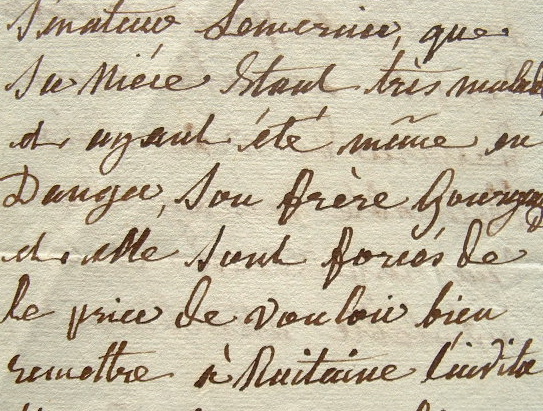 Sénateur Lemercier, que
sa Niéce Etant très malad
et ayant été même en
Danger, Son frère Gourgau
et elle sont forcés de
le prier de vouloir bien
remettre à huitaine l'invita